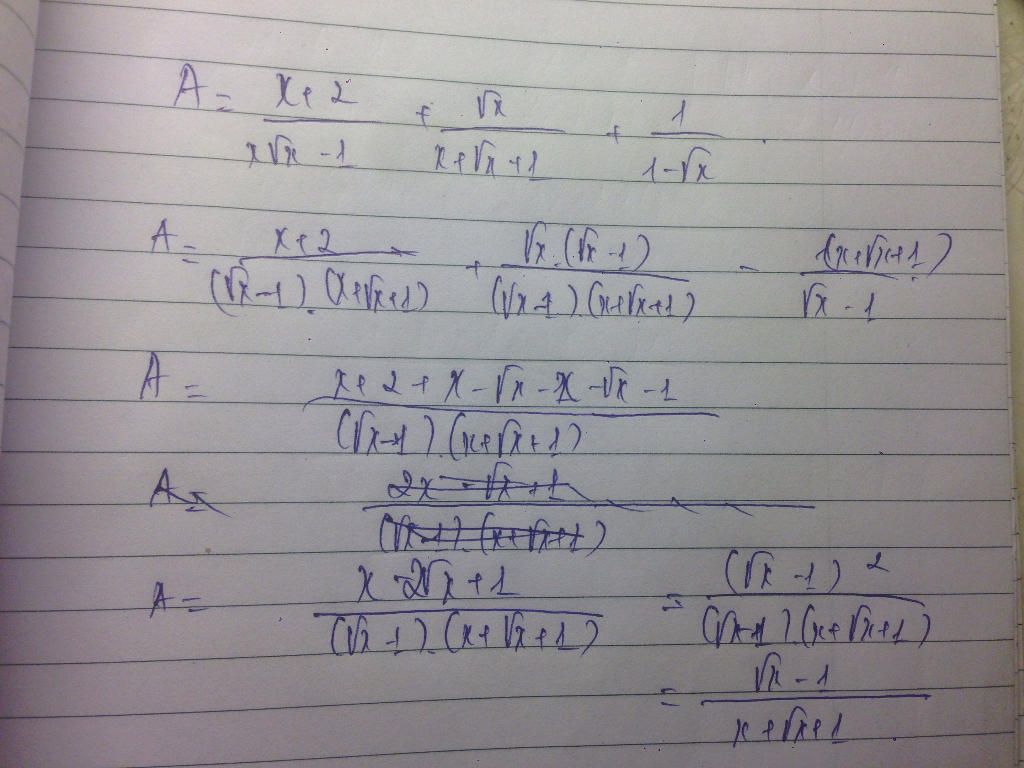 A = (x+2)/(x√x - 1) + √x/(x+√x+1) + 1/(1-√x).
A = (x+2)/((√x-1).(x+√x+1)) + (√x.(√x-1))/((√x-1).(x+√x+1)) - (1(x+√x+1))/(√x-1)
A = (x+2+x-√x-x-√x-1)/((√x-1).(x+√x+1))
A = (2x-√x+1)/((√x-1).(x+√x+1))
A = (x-2√x+1)/((√x-1).(x+√x+1)) = (√x-1)²/((√x-1).(x+√x+1))
= (√x-1)/(x+√x+1).